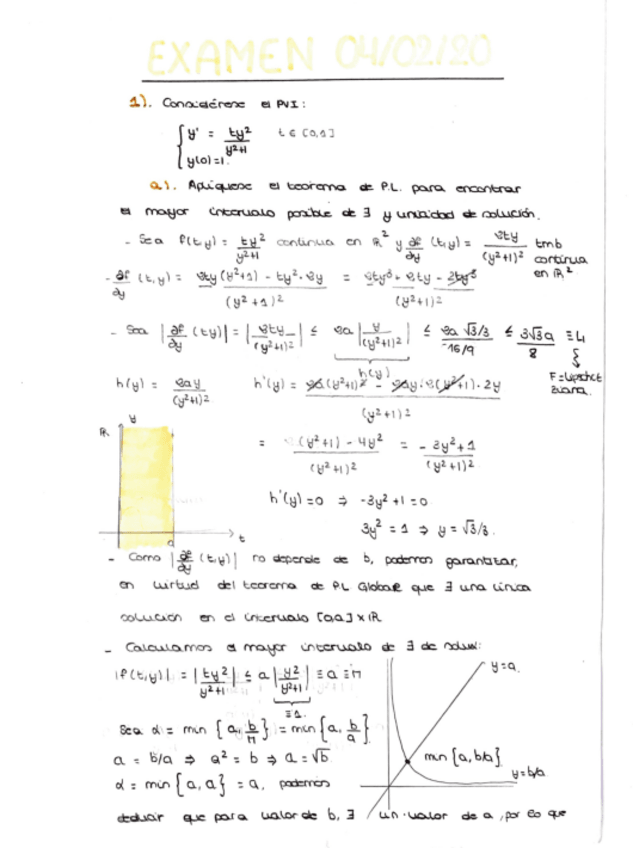 EXAMEN 04/02/20
1). Considérese el PVI:
{ y' = ty²/(y²+1) t ∈ [0,1]
y(0)=1.
a). Aplíquese el teorema de P.L. para encontrar
el mayor intervalo posible de ∃ y unicidad de solución.
- Sea f(t,y) = ty²/(y²+1) continua en ℝ² y ∂f/∂y (t,y) = 2ty/(y²+1)² tmb continua en ℝ².
- ∂f/∂y (t,y) = (2ty(y²+1) - ty²·2y)/(y²+1)² = (2ty³ + 2ty - 2ty³)/(y²+1)²
- Sea |∂f/∂y (t,y)| = |2ty/(y²+1)²| ≤ 2a |y/(y²+1)²| ≤ (2a √3/3)/(16/9) ≤ 3√3a/8 ≡ L
h(y)
F = Lipschitziana.
h(y) = 2ay/(y²+1)² h'(y) = (2a(y²+1)² - 2ay·2(y²+1)·2y)/(y²+1)²
= ((y²+1) - 4y²)/(y²+1)² = (-3y²+1)/(y²+1)²
h'(y)=0 ⇒ -3y²+1=0
3y² = 1 ⇒ y = √3/3.
ℝ y
a t
- Como |∂f/∂y (t,y)| no depende de b, podemos garantizar,
en virtud del teorema de PL Global que ∃ una única
solución en el intervalo [0,a] x ℝ
- Calculamos el mayor intervalo de ∃ de soluc:
|f(t,y)| = |ty²/(y²+1)| ≤ a |y²/(y²+1)| ≡ a ≡ M
≡ 1.
Sea α = min {a, b/M} = min {a, b/a}
a = b/a ⇒ a² = b ⇒ a = √b
α = min {a, a} = a, podemos
y=a.
min {a, b/a}
y=b/a
deducir que para valor de b, ∃ un valor de a, por lo que